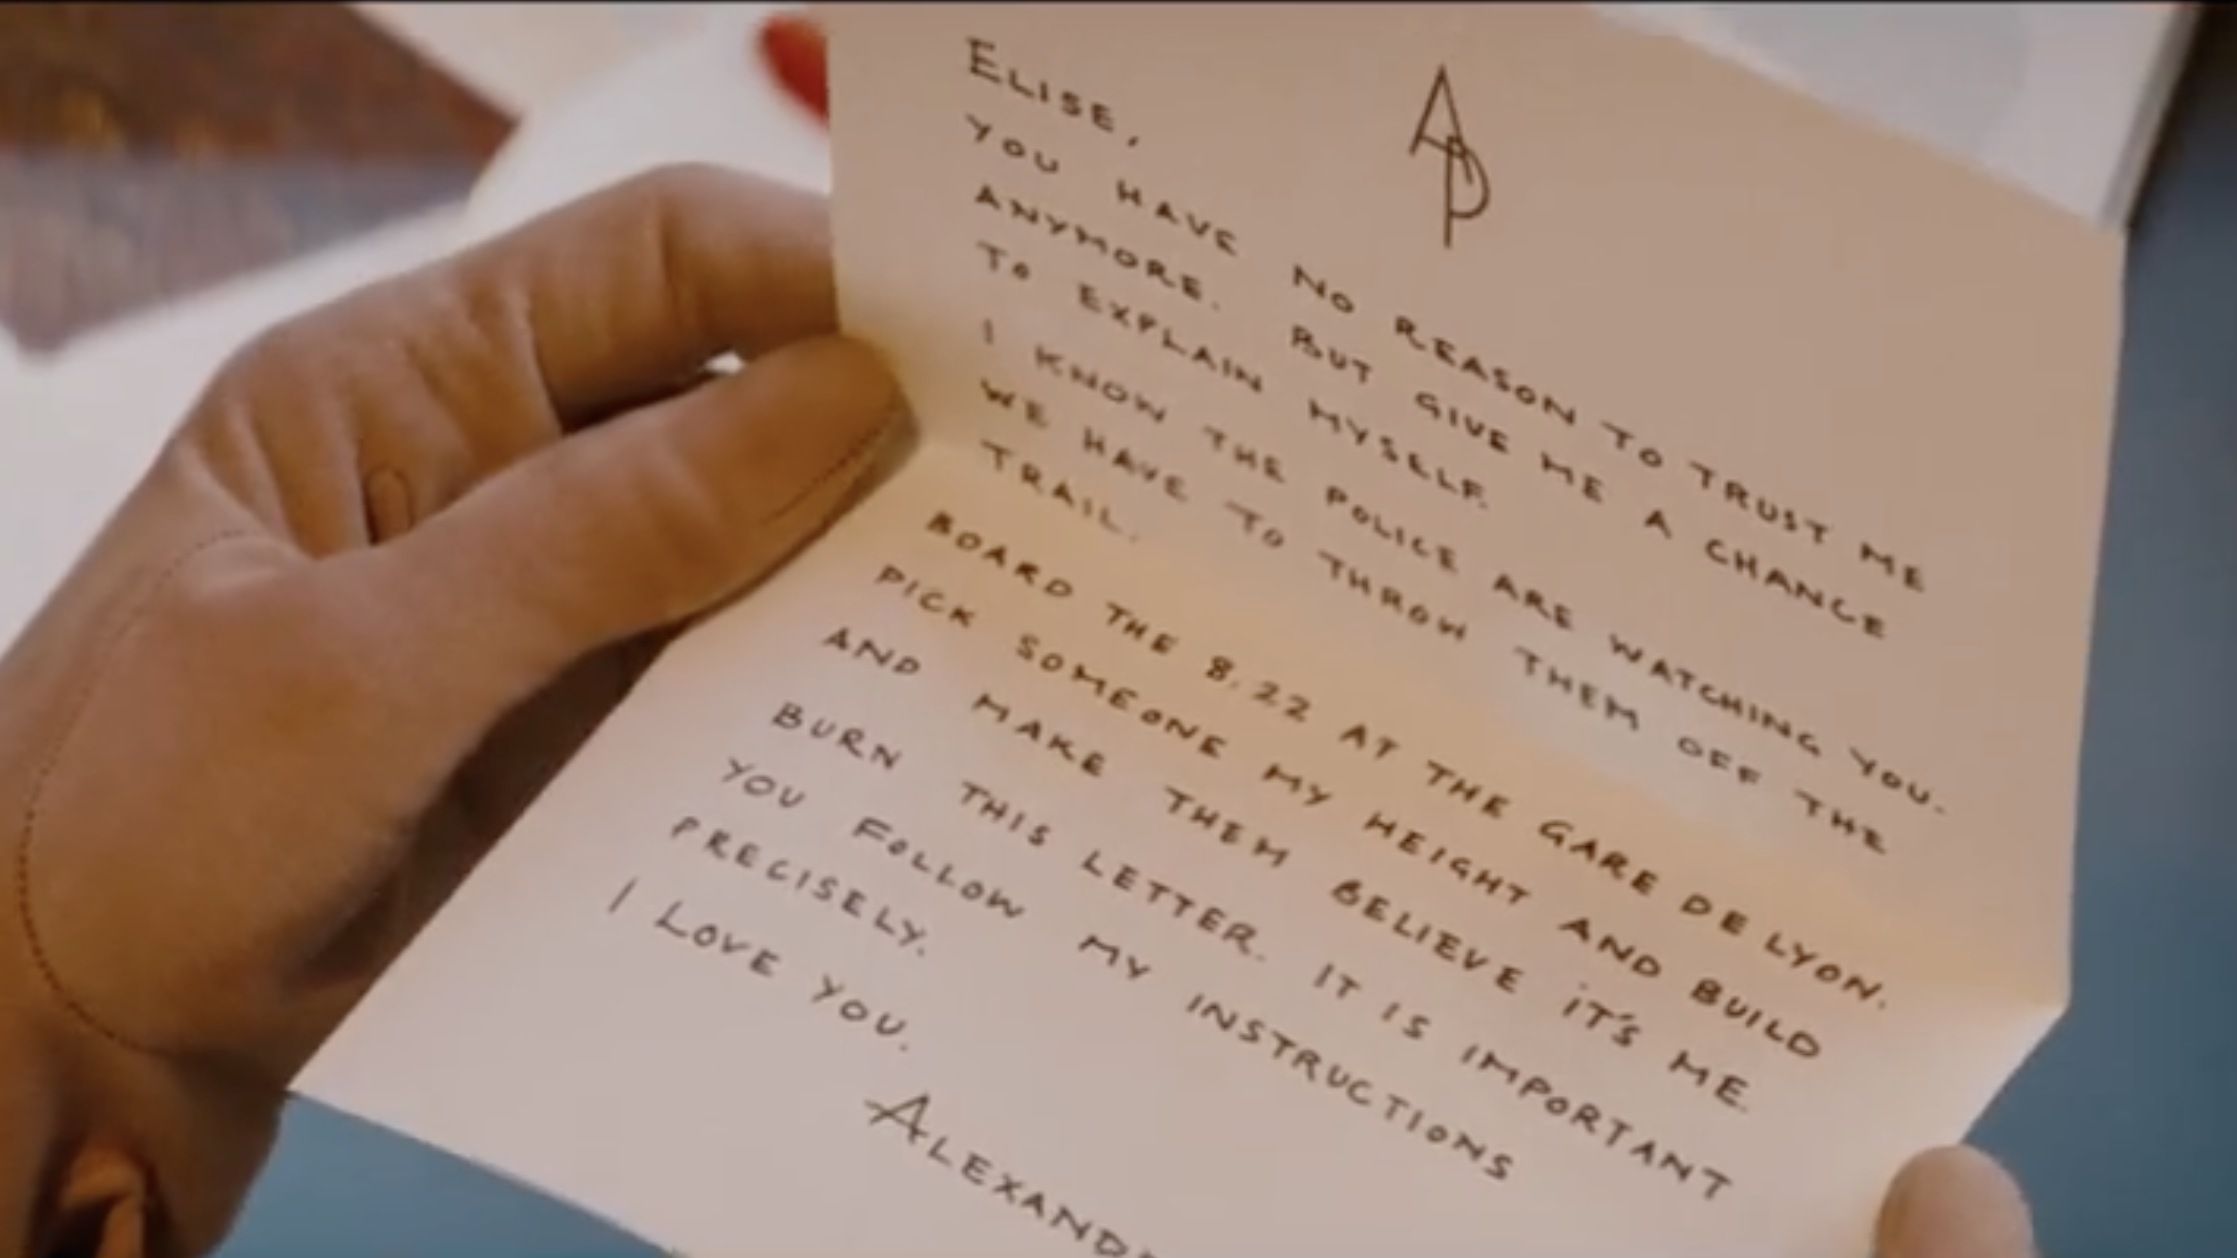 AP
ELISE,
YOU HAVE NO REASON TO TRUST ME
ANYMORE. BUT GIVE ME A CHANCE
TO EXPLAIN MYSELF.
I KNOW THE POLICE ARE WATCHING YOU.
WE HAVE TO THROW THEM OFF THE
TRAIL.
BOARD THE 8.22 AT THE GARE DE LYON.
PICK SOMEONE MY HEIGHT AND BUILD
AND MAKE THEM BELIEVE IT'S ME.
BURN THIS LETTER. IT IS IMPORTANT
YOU FOLLOW MY INSTRUCTIONS
PRECISELY.
I LOVE YOU.
ALEXAND